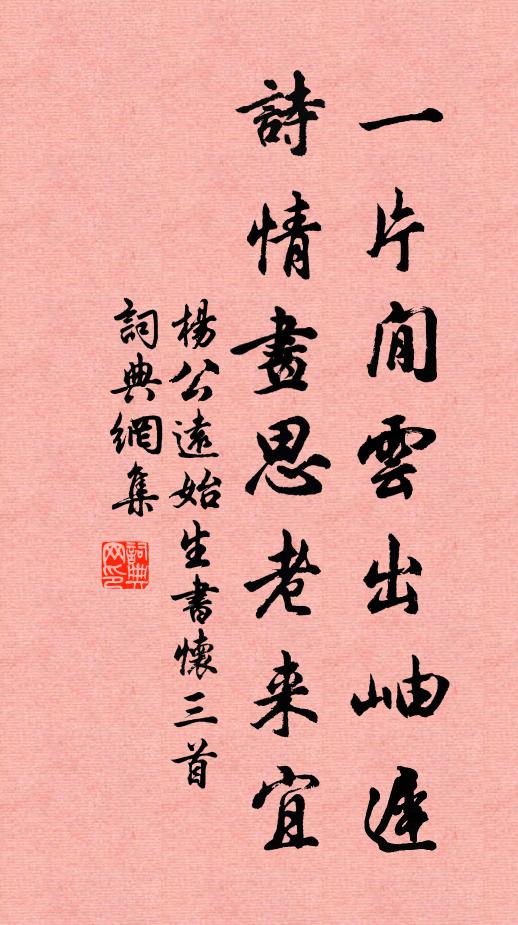 一片閒雲出岫遲
詩情畫思老来宜
楊公遠始生書懷三首
詞典網集
詞典网印